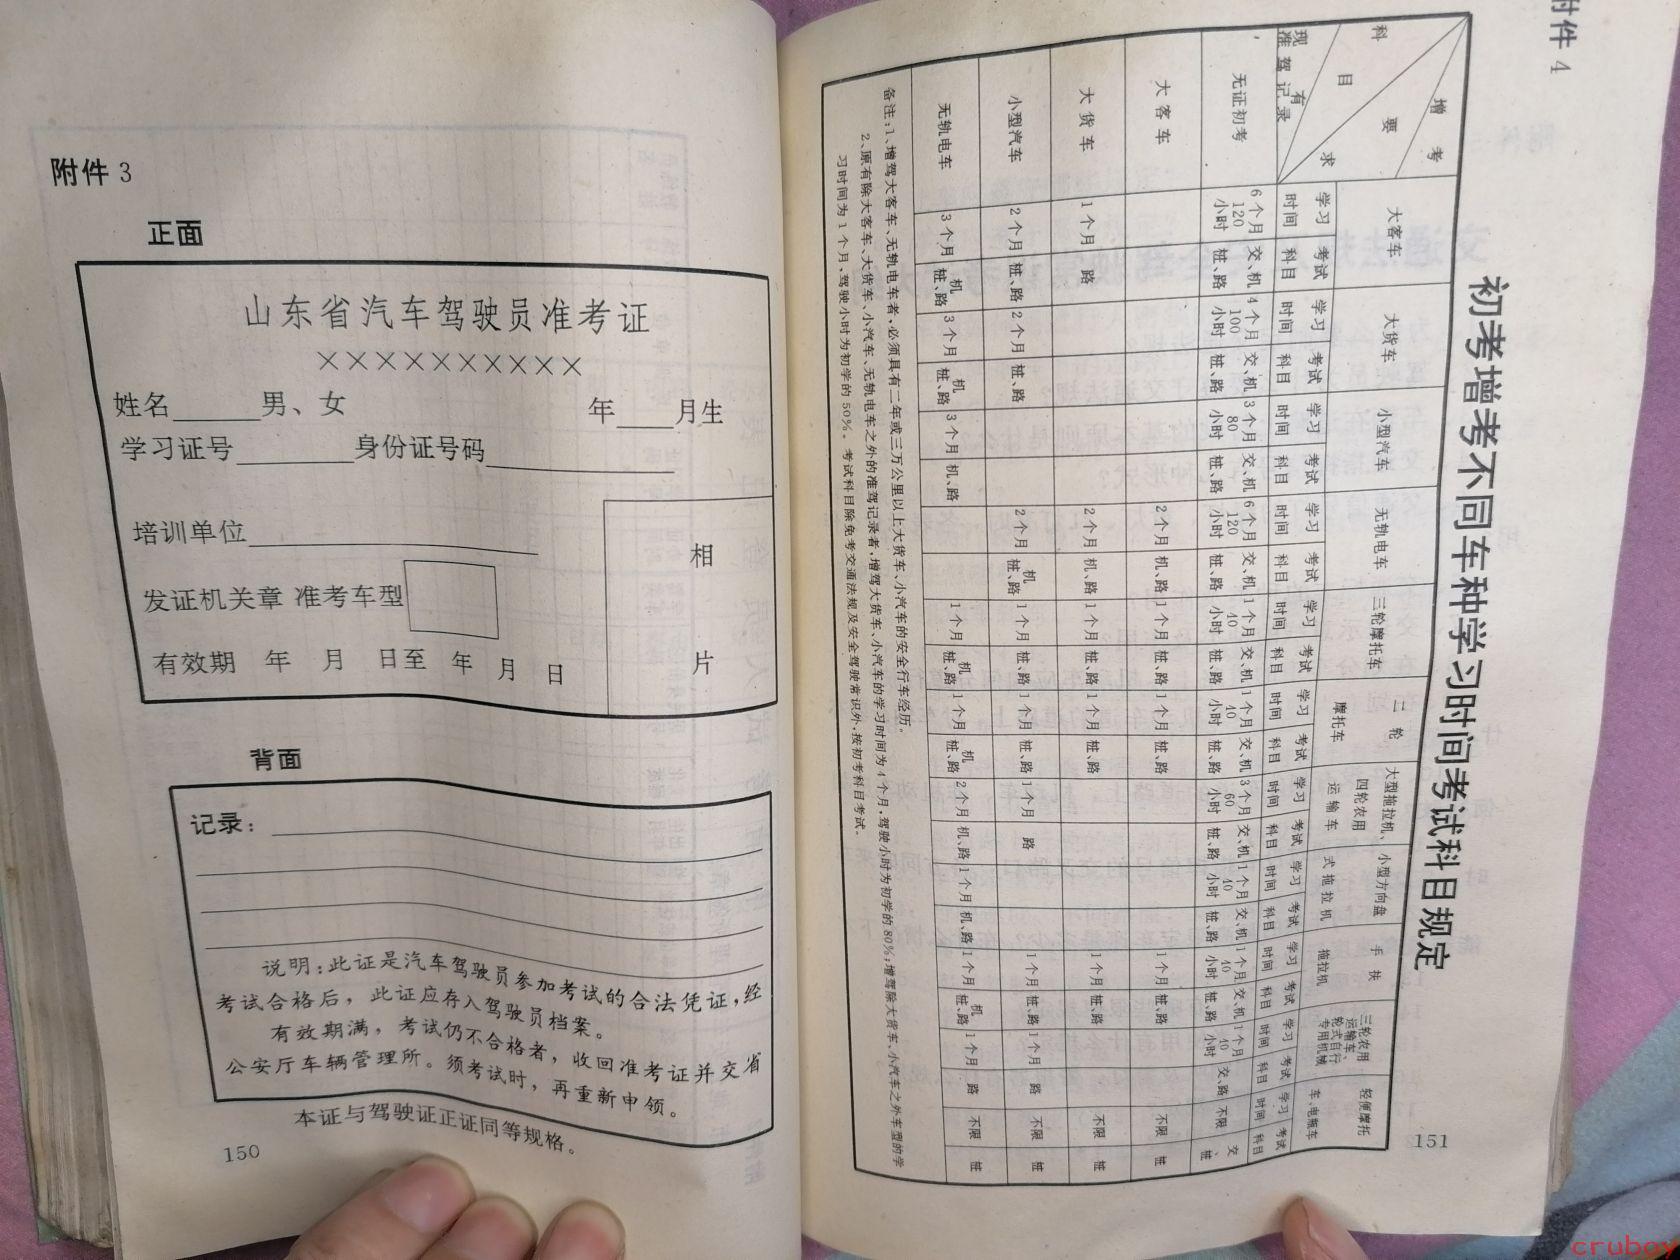 附件 3
正面
山东省汽车驾驶员准考证
××××××××××
姓名 男、女 年 月生
学习证号 身份证号码
培训单位
相
发证机关章 准考车型
片
有效期 年 月 日至 年 月 日
背面
记录：
说明：此证是汽车驾驶员参加考试的合法凭证，经
考试合格后，此证应存入驾驶员档案。
有效期满，考试仍不合格者，收回准考证并交省
公安厅车辆管理所。须考试时，再重新申领。
本证与驾驶证正证同等规格。
150
附件 4
初考增考不同车种学习时间考试科目规定
科目 要求 增考
现有准驾记录
大客车 大货车 小型汽车 无轨电车 三轮摩托车 二轮摩托车 大型拖拉机、四轮农用运输车 小型方向盘式拖拉机 手扶拖拉机 三轮农用运输车、轮式自行专用机械 轻便摩托车、电瓶车
学习时间 考试科目 学习时间 考试科目 学习时间 考试科目 学习时间 考试科目 学习时间 考试科目 学习时间 考试科目 学习时间 考试科目 学习时间 考试科目 学习时间 考试科目 学习时间 考试科目 学习时间 考试科目
无证初考 6个月120小时 交、机桩、路 4个月100小时 交、机桩、路 3个月80小时 交、机桩、路 6个月120小时 交、机桩、路 1个月40小时 交、机桩、路 1个月40小时 交、机桩、路 3个月60小时 交、机桩、路 1个月40小时 交、机桩、路 1个月40小时 交、机桩、路 1个月40小时 交、路 不限 交、桩
大客车 2个月 机、路 1个月 桩、路 1个月 桩、路 1个月 桩、路 不限 桩
大货车 1个月 路 2个月 机、路 1个月 桩、路 1个月 桩、路 1个月 桩、路 不限 桩
小型汽车 2个月 桩、路 2个月 桩、路 2个月 机桩、路 1个月 桩、路 1个月 桩、路 1个月 路 1个月 桩、路 1个月 路 不限 桩
无轨电车 3个月 机桩、路 3个月 机桩、路 3个月 机、路 1个月 机桩、路 1个月 机桩、路 2个月 机、路 1个月 机、路 1个月 机桩、路 1个月 路 不限 桩
备注：1、增驾大客车、无轨电车者，必须具有二年或三万公里以上大货车、小汽车的安全行车经历。
2、原有除大客车、大货车、小汽车、无轨电车之外的准驾记录者，增驾大货车、小汽车的学习时间为4个月，驾驶小时为初学的80%；增驾除大货车、小汽车之外车型的学
习时间为1个月，驾驶小时为初学的50%。考试科目除免考交通法规及安全驾驶常识外，按初考科目考试。
151
cruboy